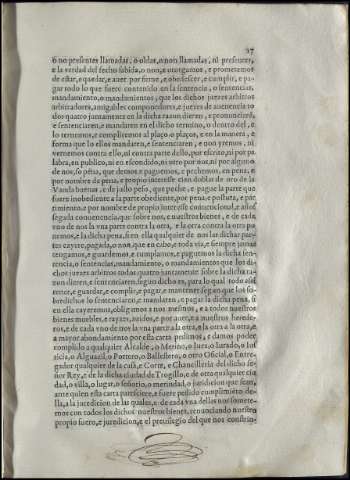 27
o no presentes llamadas, o oidas, o non llamadas, ni presentes,
e la verdad del fecho sabida, o non, e otorgamos, e prometemos
de estar, e quedar, e auer por firme, e obedescer, e cumplir, e pa-
gar todo lo que fuere contenido en la sentencia, o sentencias,
mandamiento, o mandamientos, que los dichos juezes arbitros
arbitradores, amigables componedores, e juezes de auenencia to
dos quatro juntamente en la dicha razon dieren, e pronunciaren,
e sentenciaren, e mandaren en el dicho termino, o dentro del, e
lo ternemos, e compliremos al plaço, o plaços, e en la manera, e
forma que lo ellos mandaren, e sentenciaren, e non yremos, ni
vernemos contra ello, ni contra parte dello, por escrito, ni por pa
labra, en publico, ni en escondido, ni otro por nos, ni por alguno
de nos, so pena, que demos e paguemos, e pechemos, en pena, e
por nombre de pena, e propio interesse cien doblas de oro de la
Vanda buenas, e de justo peso, que peche, e pague la parte que
fuere inobediente a la parte obediente, por pena e postura, e por
e por nombre de propio interesse conuencional, e
segada conuenencia, que sobre nos, e nuestros bienes, e de cada
vno de nos la vna parte contra la otra, e la otra contra la otra po
nemos, e la dicha pena, si en ella qualquier de nos las dichas par-
tes cayere, pagada, o non, que en cabo, e toda via, e siempre jamas
tengamos, e guardemos, e cumplamos, e paguemos la dicha sen-
tencia, o sentencias, mandamiento, o mandamientos que los di-
chos juezes arbitros todos quatro juntamente sobre la dicha ra-
zon dieren, e sentenciaren, segun dicho es, para lo qual todo assi
tener, e guardar, e complir, e pagar, e mantener segun que los so-
bredichos lo sentenciaren, e mandaren, e pagar la dicha pena, si
en ella cayeremos, obligamos a nos mesmos, e a todos nuestros
bienes muebles, e rayzes, auidos, e por auer, e a nuestros herede-
ros, e de cada vno de nos la vna parte a la otra, e la otra a la otra, e
a mayor abondamiento por esta carta pedimos, e damos poder
complido a qualquier Alcalde, o Merino, o Iurado, o Ius
ticia, o Alguazil, o Portero, o Ballestero, o otro Oficial, o Entre-
gador qualquier de la casa, e Corte, e Chancilleria del dicho se-
ñor Rey, e de la dicha ciudad de Trogillo, e de otro qualquier ciu
dad, o villa, o lugar, o señorio, o merindad, o juridicion que sean,
ante quien esta carta paresciere, e fuere pedido cumplimiento de-
lla, a la juredicion de las quales, e de cada vna dellas nos somete-
mos con todos los dichos nuestros bienes, renunciando nuestro
propio fuero, e juredicion, e el preuilegio del que nos constriñ-